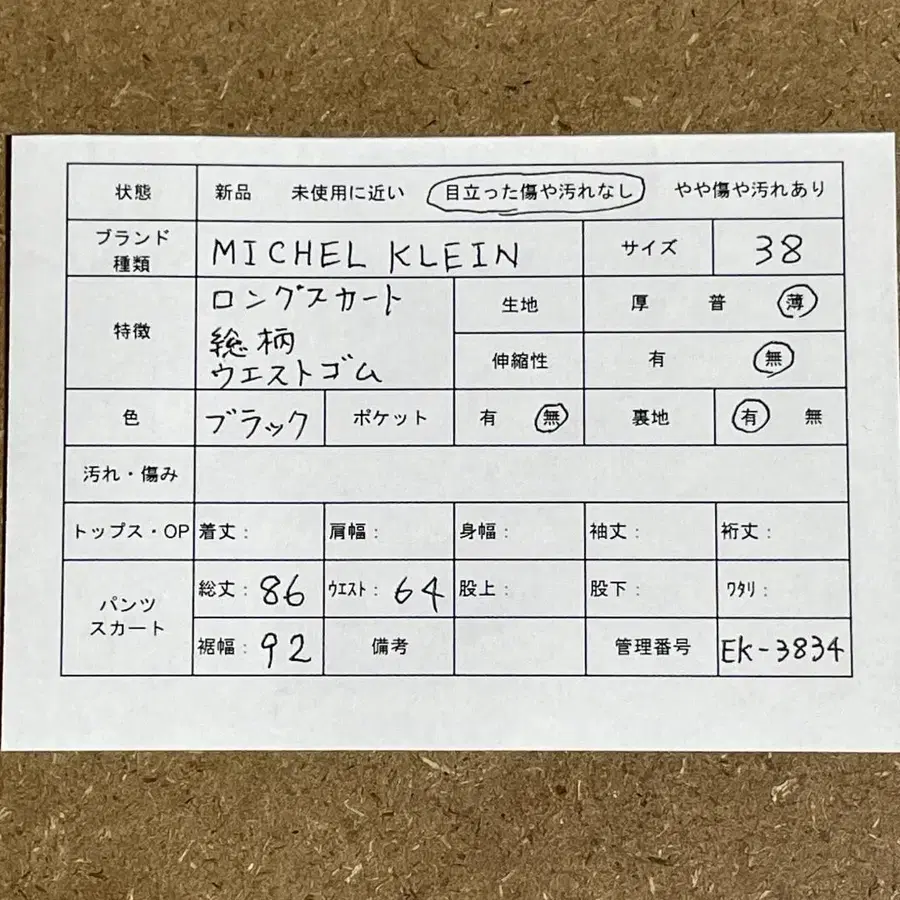 状態 新品 未使用に近い 目立った傷や汚れなし やや傷や汚れあり
ブランド
種類 MICHEL KLEIN サイズ 38
特徴 ロングスカート
総柄
ウエストゴム
生地 厚 普 薄
伸縮性 有 無
色 ブラック ポケット 有 無 裏地 有 無
汚れ・傷み
トップス・OP 着丈: 肩幅: 身幅: 袖丈: 裄丈:
パンツ
スカート
総丈: 86 ウエスト: 64 股上: 股下: ワタリ:
裾幅: 92 備考 管理番号 EK-3834